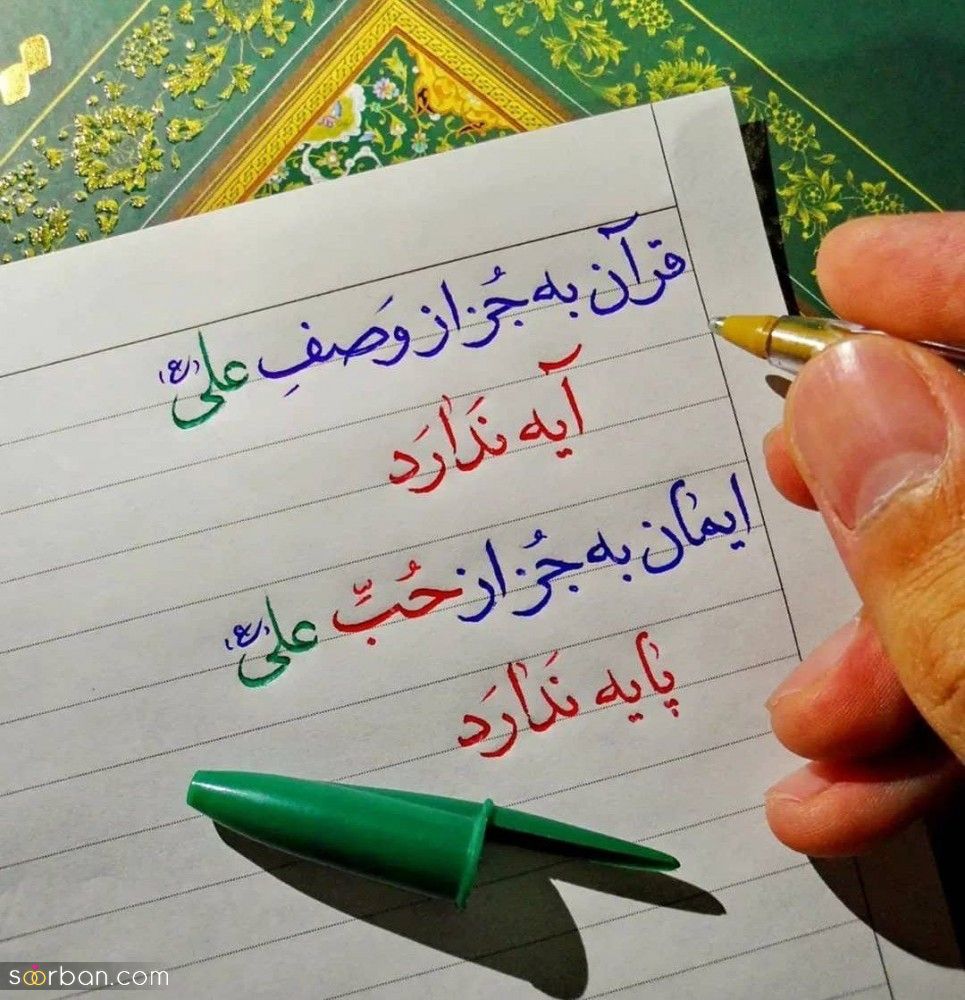 قرآن به جُز از وَصفِ علی (ع)
آیه نَدارَد
ایمان به جُز از حُبِّ علی (ع)
پایه نَدارَد
soorban.com